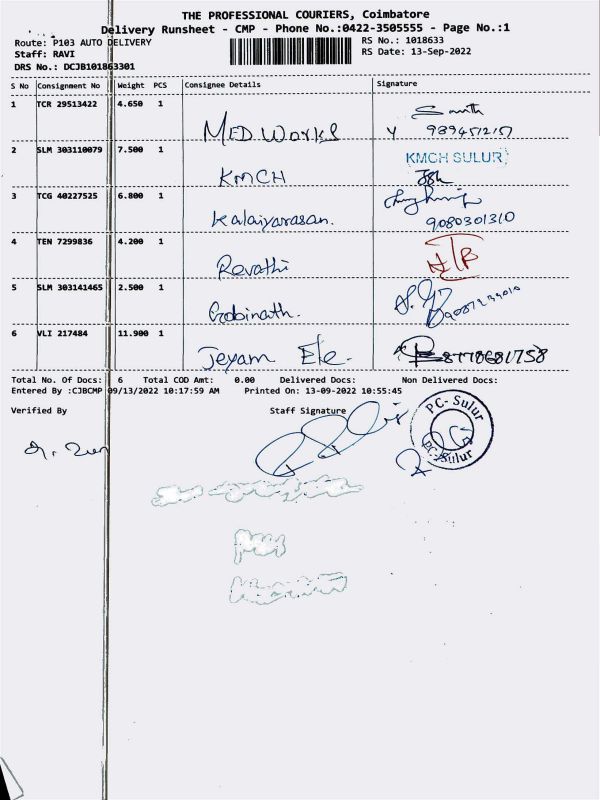 THE PROFESSIONAL COURIERS, Coimbatore
Delivery Runsheet - CMP - Phone No.:0422-3505555 - Page No.:1
Route: P103 AUTO DELIVERY
RS No.: 1018633
Staff: RAVI
RS Date: 13-Sep-2022
DRS No.: DCJB101863301
S No Consignment No Weight PCS Consignee Details Signature
1 TCR 29513422 4.650 1 MED WORKS
2 SLM 303110079 7.500 1 KMCH KMCH SULUR
3 TCG 40227525 6.800 1 Kalaiyarasan. 9080301310
4 TEN 7299836 4.200 1 Revathi
5 SLM 303141465 2.500 1 Gobinath.
6 VLI 217484 11.900 1 Jeyam Ele.
Total No. Of Docs: 6 Total COD Amt: 0.00 Delivered Docs: Non Delivered Docs:
Entered By :CJBCMP 09/13/2022 10:17:59 AM Printed On: 13-09-2022 10:55:45
Verified By Staff Signature
PC- Sulur
PC-Sulur